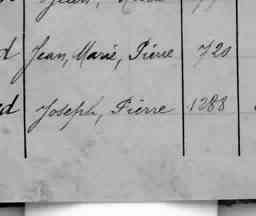 d Jean, Marie, Pierre 720
d Joseph, Pierre 1288